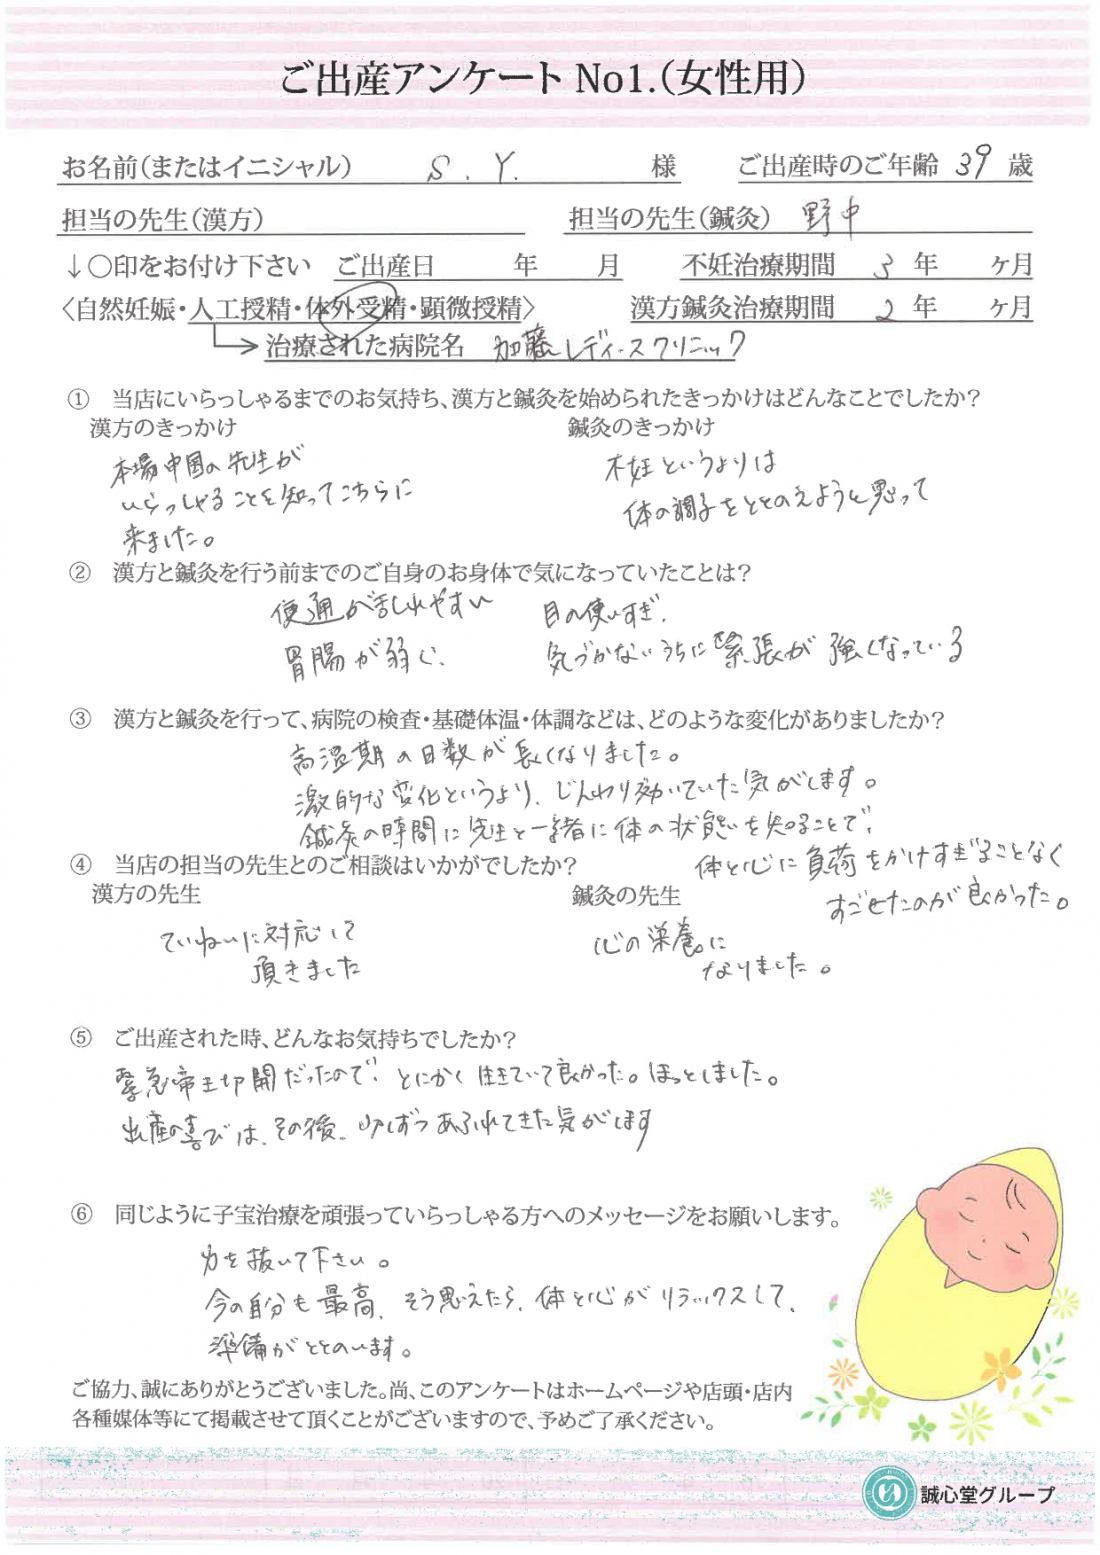 ご出産アンケート No1.(女性用)
お名前(またはイニシャル) S.Y. 様 ご出産時のご年齢 39 歳
担当の先生(漢方) 担当の先生(鍼灸) 野中
↓○印をお付け下さい ご出産日 年 月 不妊治療期間 3 年 ヶ月
〈自然妊娠・人工授精・体外受精・顕微授精〉 漢方鍼灸治療期間 2 年 ヶ月
治療された病院名 加藤レディースクリニック
① 当店にいらっしゃるまでのお気持ち、漢方と鍼灸を始められたきっかけはどんなことでしたか?
漢方のきっかけ
本場中国の先生が
いらっしゃることを知ってこちらに
来ました。
鍼灸のきっかけ
不妊というよりは
体の調子をととのえようと思って
② 漢方と鍼灸を行う前までのご自身のお身体で気になっていたことは?
便通が乱れやすい 目の使いすぎ.
胃腸が弱く、 気づかないうちに緊張が強くなっている
③ 漢方と鍼灸を行って、病院の検査・基礎体温・体調などは、どのような変化がありましたか?
高温期の日数が長くなりました。
激的な変化というより、じんわり効いていた気がします。
鍼灸の時間に先生と一緒に体の状態を知ることで、
体と心に負荷をかけすぎることなく
すごせたのが良かった。
④ 当店の担当の先生とのご相談はいかがでしたか?
漢方の先生
ていねいに対応して
頂きました
鍼灸の先生
心の栄養に
なりました。
⑤ ご出産された時、どんなお気持ちでしたか?
緊急帝王切開だったので、とにかく生きていて良かった。ほっとしました。
出産の喜びは、その後、少しずつあふれてきた気がします
⑥ 同じように子宝治療を頑張っていらっしゃる方へのメッセージをお願いします。
力を抜いて下さい。
今の自分も最高、そう思えたら、体と心がリラックスして、
準備がととのいます。
ご協力、誠にありがとうございました。尚、このアンケートはホームページや店頭・店内
各種媒体等にて掲載させて頂くことがございますので、予めご了承ください。
誠心堂グループ